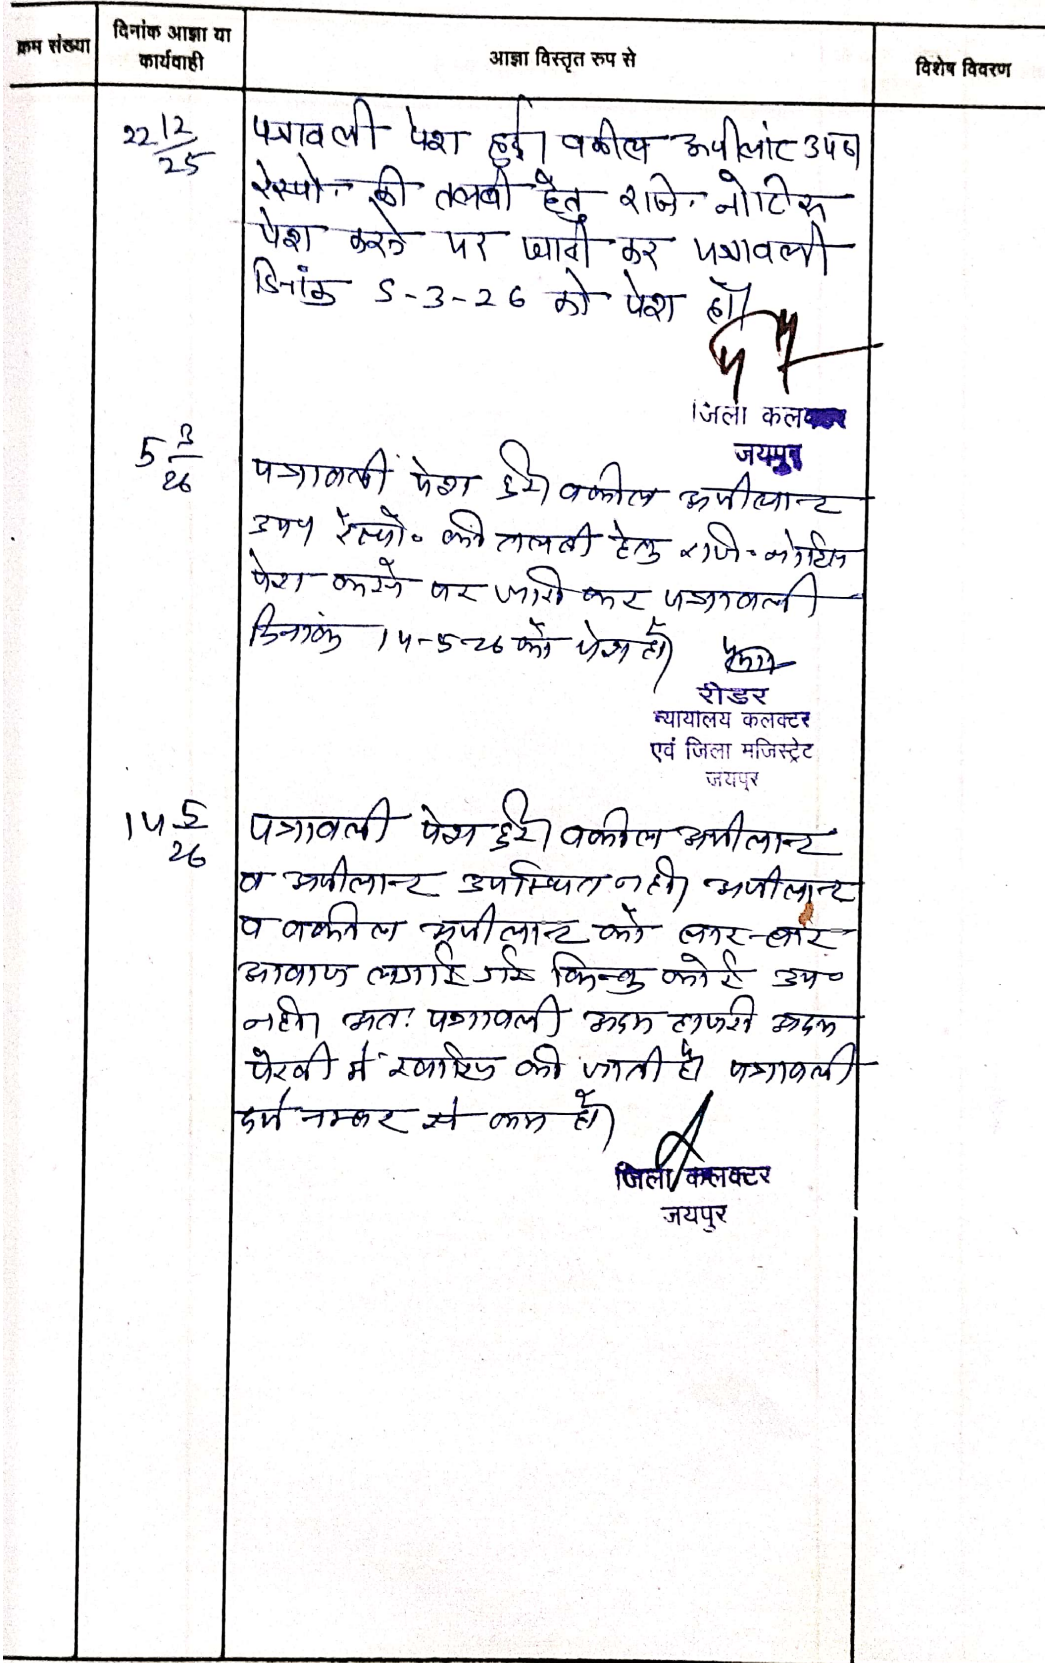 क्रम संख्या
दिनांक आज्ञा या
कार्यवाही
आज्ञा विस्तृत रुप से
विशेष विवरण
22 12/25
पत्रावली पेश हुई। वकील अपीलांट उप0।
रेस्पो. की तलबी हेतु रजि. नोटिस
पेश करने पर जारी कर पत्रावली
दिनांक 5-3-26 को पेश हो।
जिला कलक्टर
जयपुर
5 3/26
पत्रावली पेश हुई। वकील अपीलान्ट
उप0 रेस्पो. की तलबी हेतु रजि. नोटिस
पेश करने पर जारी कर पत्रावली
दिनांक 14-5-26 को पेश हो।
रीडर
न्यायालय कलक्टर
एवं जिला मजिस्ट्रेट
जयपुर
14 5/26
पत्रावली पेश हुई। वकील अपीलान्ट
व अपीलान्ट उपस्थित नही। अपीलान्ट
व वकील अपीलान्ट को बार-बार
आवाज लगाई गई किन्तु कोई उप०
नही। अतः पत्रावली अदम हाजरी अदम
पैरवी में खारिज की जाती है। पत्रावली
दर्ज नम्बर से कम हो।
जिला कलक्टर
जयपुर